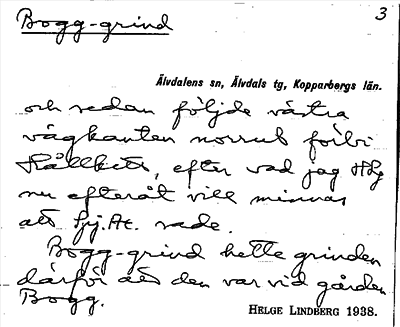 Bogg-grind
3
Älvdalens sn, Älvdals tg, Kopparbergs län.
och sedan följde västra
vägkanten norrut förbi
efter vad jag
nu efteråt vill minnas
att sade.
Bogg-grind hette grinden
därför att den var vid gården
Bogg.
HELGE LINDBERG 1938.